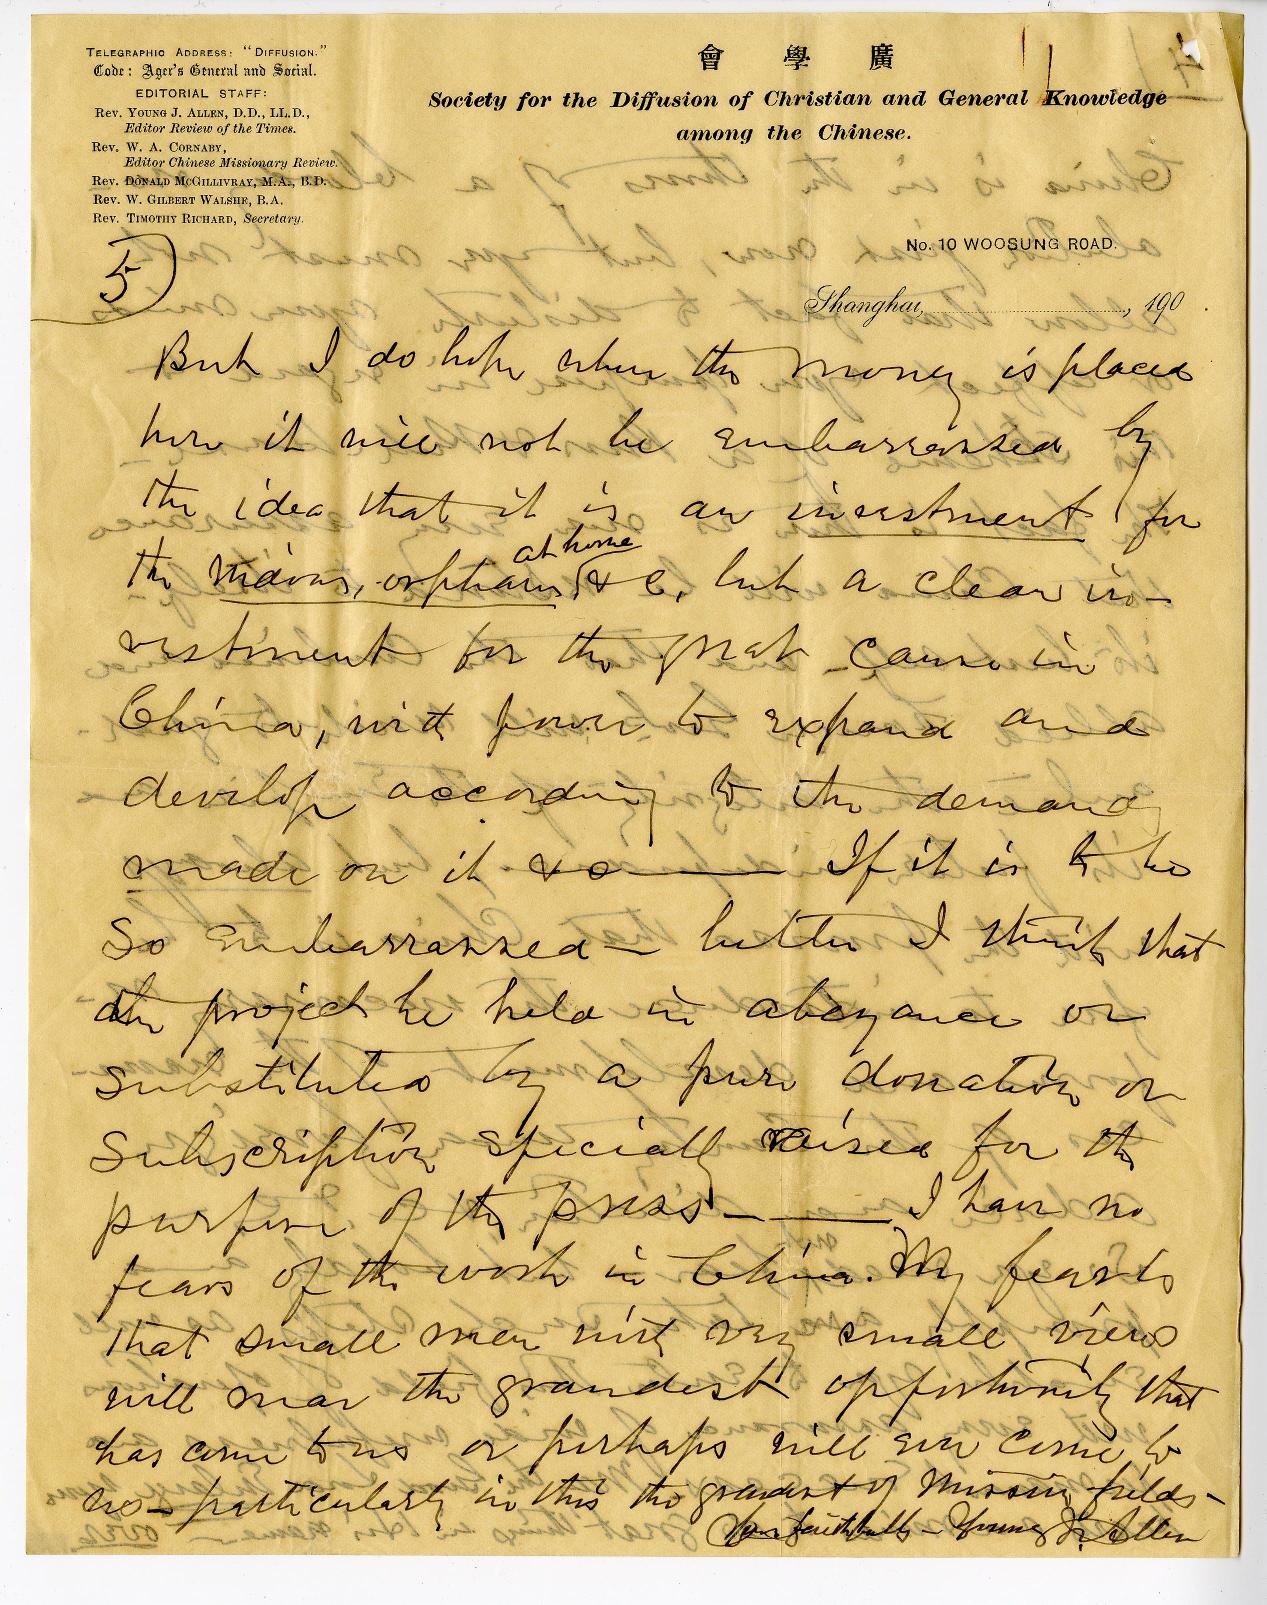 TELEGRAPHIC ADDRESS: "DIFFUSION."
Code: Ager's General and Social.
EDITORIAL STAFF:
REV. YOUNG J. ALLEN, D.D., LL.D.,
Editor Review of the Times.
REV. W. A. CORNABY,
Editor Chinese Missionary Review.
REV. DONALD MCGILLIVRAY, M.A., B.D.
REV. W. GILBERT WALSHE, B.A.
REV. TIMOTHY RICHARD, Secretary.
會 學 廣
Society for the Diffusion of Christian and General Knowledge
among the Chinese.
No. 10 WOOSUNG ROAD.
Shanghai, , 190 .
5
But I do hope when the money is placed
here it will not be embarrassed by
the idea that it is an investment for
at home
the widows, orphans &c, but a clear in-
vestment for the great cause in
China, with power to expand and
develop according to the demand
made on it &c — If it is to be
so embarrassed — better I think that
the project be held in abeyance or
substituted by a pure donation or
subscription specially raised for the
purpose of the press — I have no
fears of the work in China. My fear is
that small men with very small views
will mar the grandest opportunity that
has come to us or perhaps will ever come to
us — particularly in this the grandest of Mission fields —
Yours faithfully — Young J. Allen